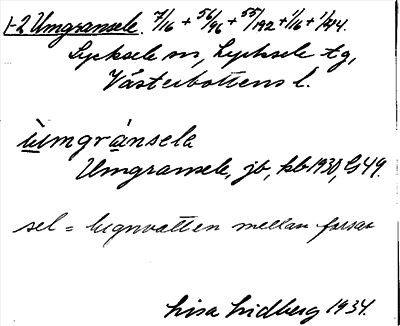 1-2 Umgransele. 7/16 + 56/96 + 55/192 + 1/16 + 1/144.
Lycksele sn, Lycksele tg,
Västerbottens l.
ùmgránsela
Umgransele, jb, kb 1930, GS 49.
sel = lugnvatten mellan forsar
Lisa Lidberg 1934.